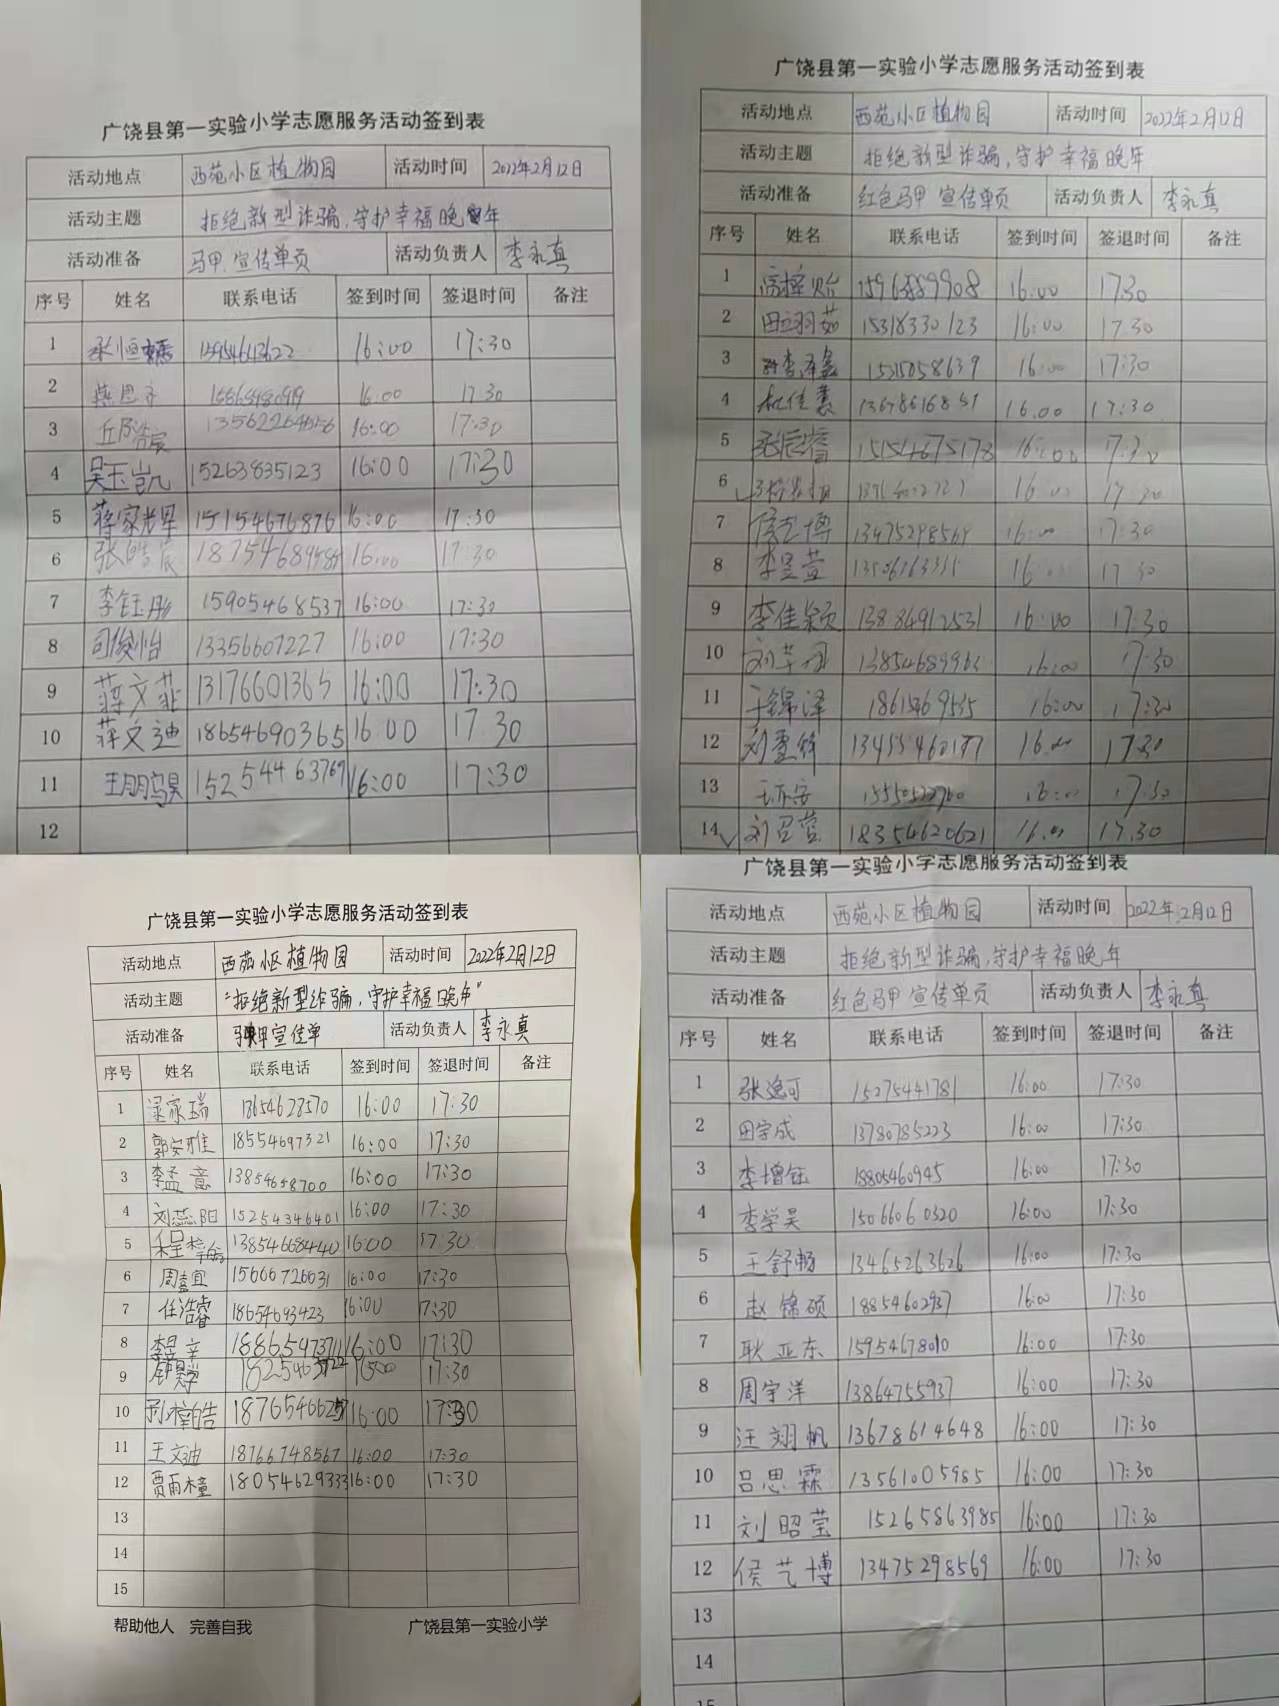 广饶县第一实验小学志愿服务活动签到表
活动地点 西苑小区植物园 活动时间 2022年2月12日
活动主题 拒绝新型诈骗,守护幸福晚年
活动准备 马甲.宣传单页 活动负责人 李永真
序号 姓名 联系电话 签到时间 签退时间 备注
1 16:00 17:30
2 16:00 17:30
3 16:00 17:30
4 吴玉凯 15263835123 16:00 17:30
5 蒋家辉 15154676876 16:00 17:30
6 张皓宸 16:00 17:30
7 李钰彤 15905468537 16:00 17:30
8 司俊怡 13356607227 16:00 17:30
9 蒋文菲 13176601365 16:00 17:30
10 蒋文迪 18654690365 16:00 17:30
11 15254463769 16:00 17:30
12
广饶县第一实验小学志愿服务活动签到表
活动地点 西苑小区植物园 活动时间 2022年2月12日
活动主题 拒绝新型诈骗,守护幸福晚年
活动准备 红色马甲 宣传单页 活动负责人 李永真
序号 姓名 联系电话 签到时间 签退时间 备注
1 16:00 17:30
2 田翊茹 15318330123 16:00 17:30
3 16:00 17:30
4 16:00 17:30
5 15154675178 16:00 17:30
6 16:00 17:30
7 侯艺博 13475298569 16:00 17:30
8 李昱萱 16:00 17:30
9 李佳颖 13884912531 16:00 17:30
10 16:00 17:30
11 于锦泽 16:00 17:30
12 16:00 17:30
13 16:00 17:30
14 18354620621 16:00 17:30
广饶县第一实验小学志愿服务活动签到表
活动地点 西苑小区植物园 活动时间 2022年2月12日
活动主题 “拒绝新型诈骗,守护幸福晚年”
活动准备 宣传单 活动负责人 李永真
序号 姓名 联系电话 签到时间 签退时间 备注
1 梁家瑞 18654628570 16:00 17:30
2 郭安雅 18554697321 16:00 17:30
3 李孟意 13854658700 16:00 17:30
4 刘蕊阳 15254346401 16:00 17:30
5 13854668440 16:00 17:30
6 周宜 15666726631 16:00 17:30
7 任浩睿 18654693423 16:00 17:30
8 16:00 17:30
9 17:30
10 16:00 17:30
11 王文迪 18766748567 16:00 17:30
12 贾雨橦 18054629333 16:00 17:30
13
14
15
帮助他人 完善自我 广饶县第一实验小学
广饶县第一实验小学志愿服务活动签到表
活动地点 西苑小区植物园 活动时间 2022年2月12日
活动主题 拒绝新型诈骗,守护幸福晚年
活动准备 红色马甲 宣传单页 活动负责人 李永真
序号 姓名 联系电话 签到时间 签退时间 备注
1 张逸可 15275441781 16:00 17:30
2 田宇成 13780785223 16:00 17:30
3 李增钰 18805460945 16:00 17:30
4 李学昊 15066060320 16:00 17:30
5 王舒畅 13465263626 16:00 17:30
6 赵锦硕 18854602937 16:00 17:30
7 耿亚东 15954678010 16:00 17:30
8 周宇洋 13864755937 16:00 17:30
9 汪翊帆 13678614648 16:00 17:30
10 吕思霖 13561005985 16:00 17:30
11 刘昭莹 15265863985 16:00 17:30
12 侯艺博 13475298569 16:00 17:30
13
14
15